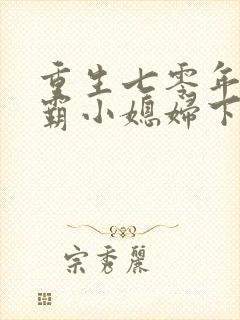 重生七零年
霸小媳婦下
宗秀麗